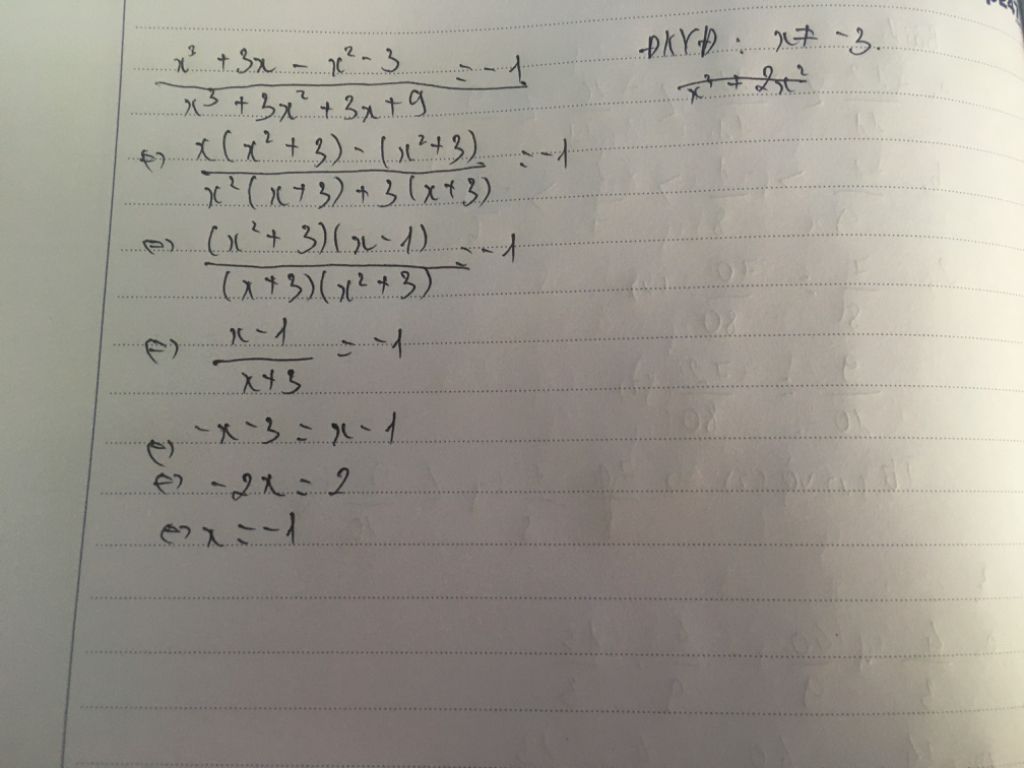 x³ + 3x - x² - 3 / x³ + 3x² + 3x + 9 = -1
ĐKXĐ : x ≠ -3.
x³ + 2x²
⇔ x(x² + 3) - (x² + 3) / x²(x + 3) + 3(x + 3) = -1
⇔ (x² + 3)(x - 1) / (x + 3)(x² + 3) = -1
⇔ x - 1 / x + 3 = -1
⇔ -x - 3 = x - 1
⇔ -2x = 2
⇔ x = -1